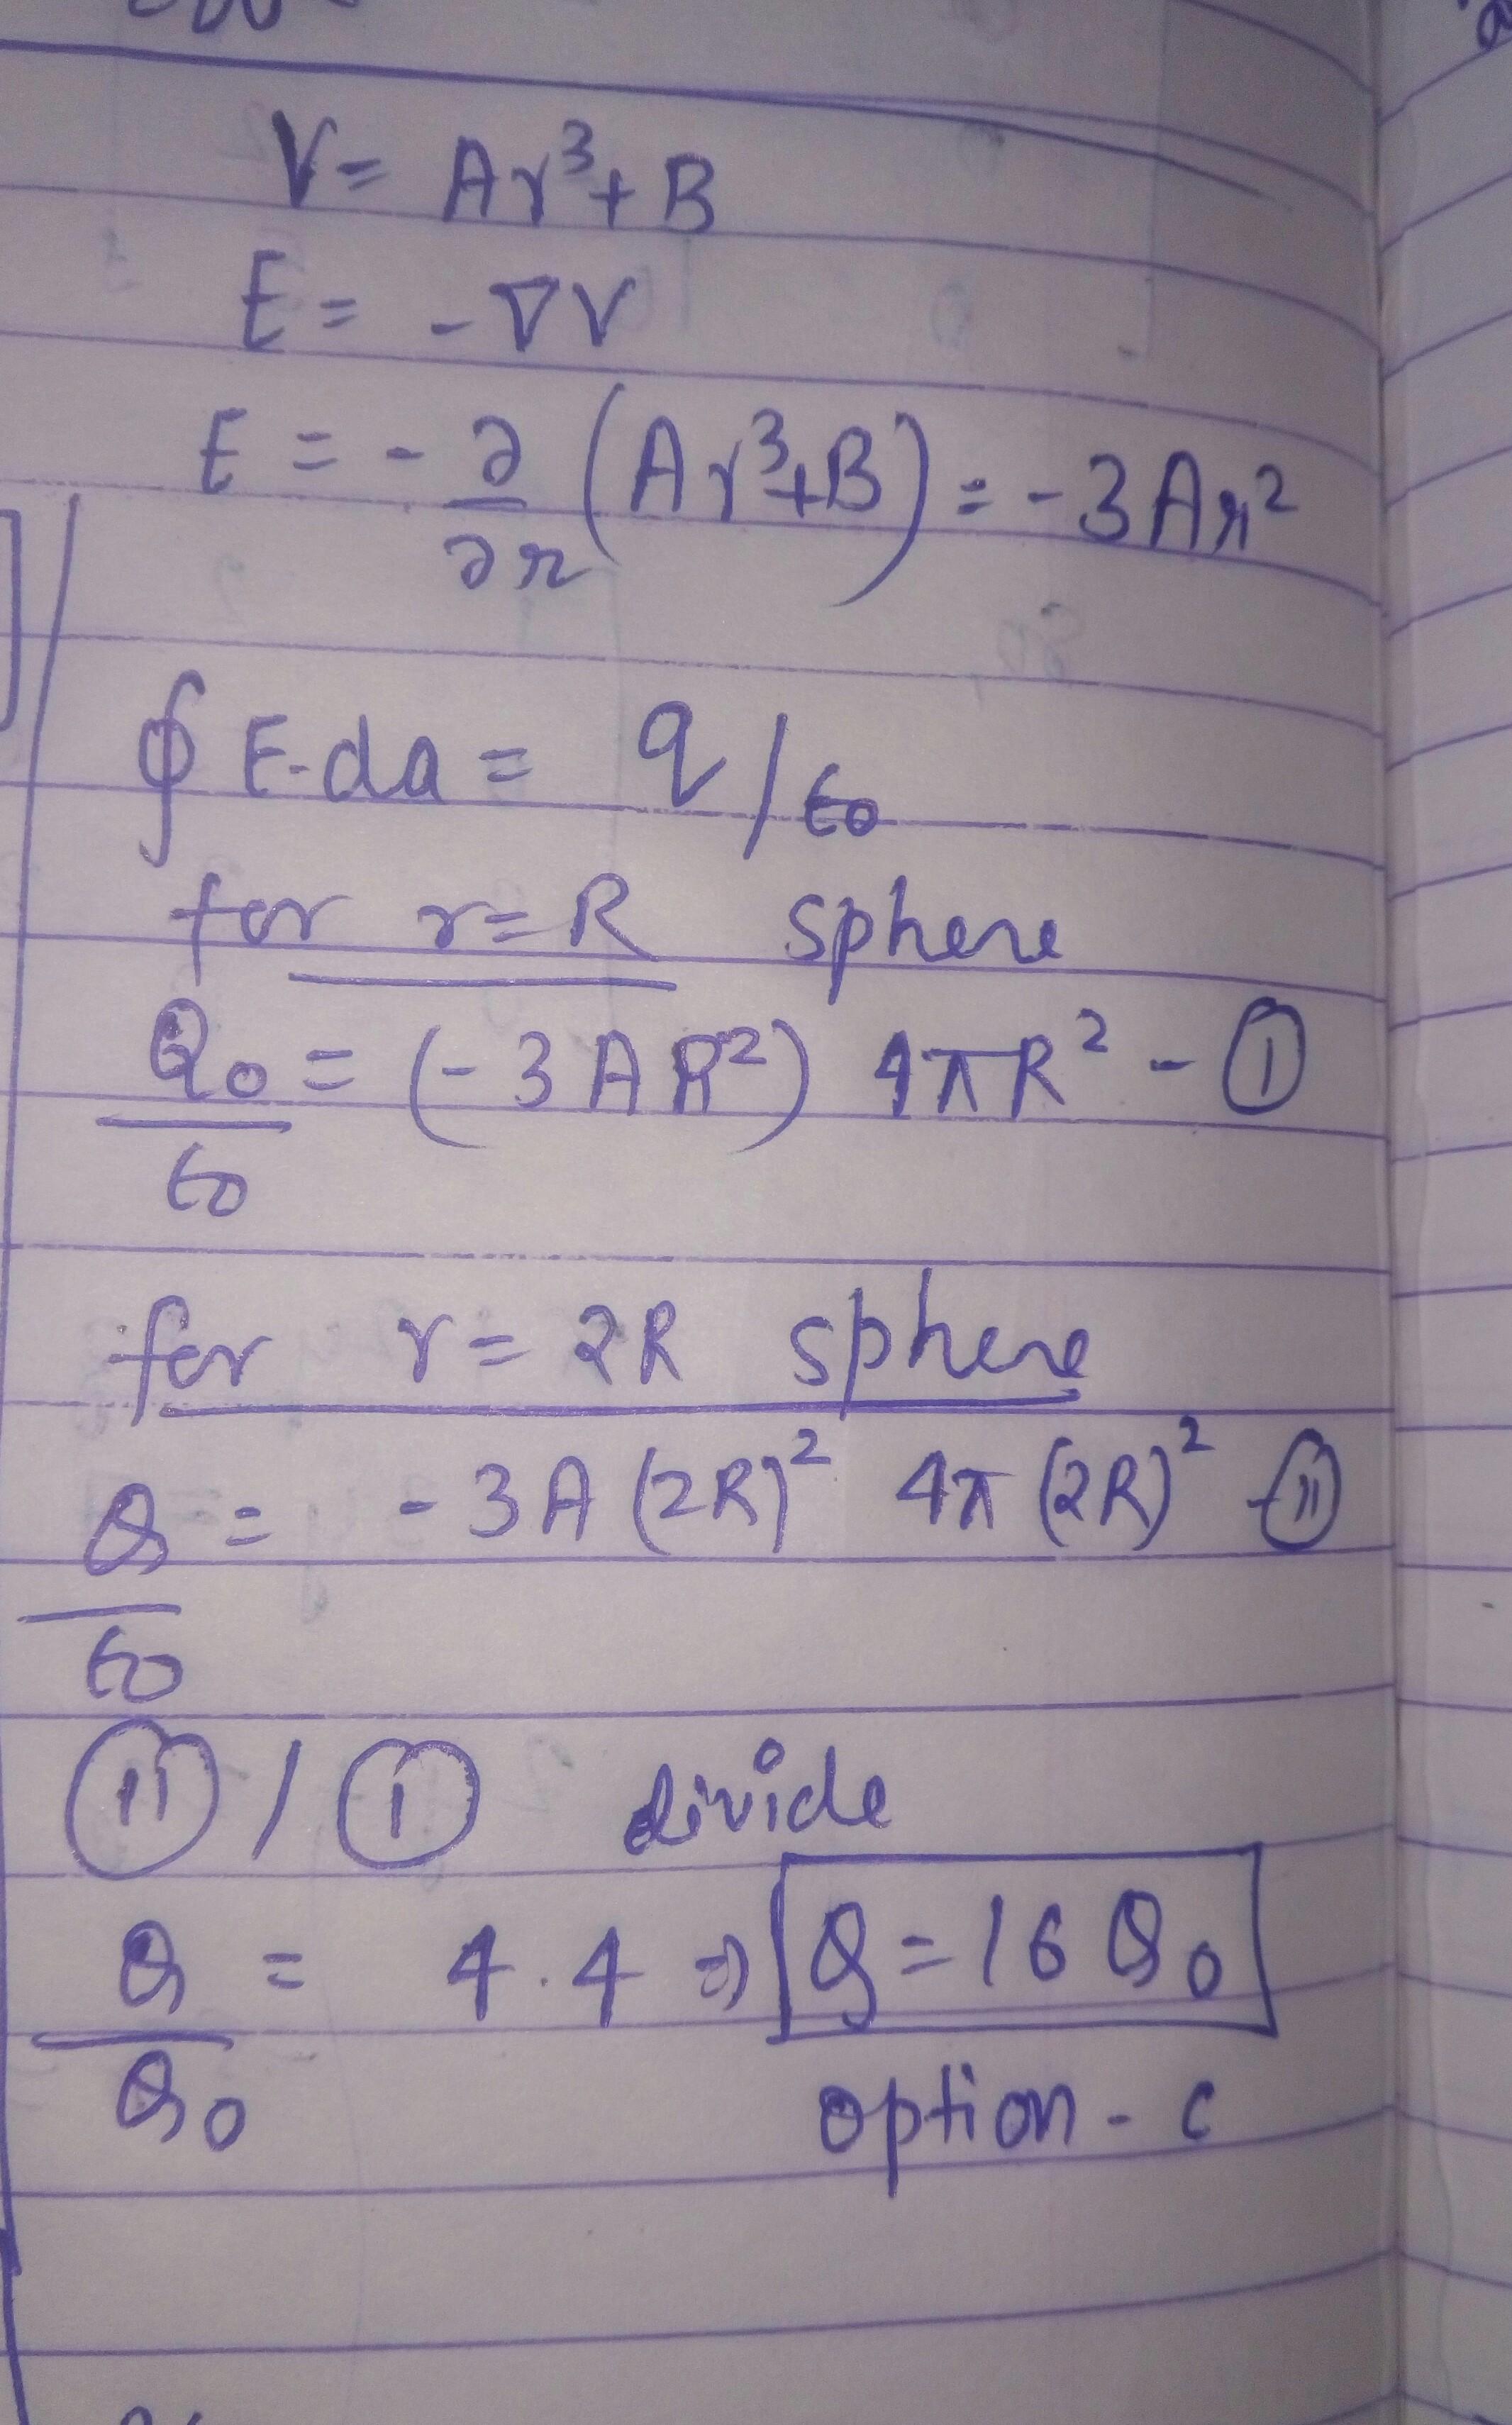 V = Ar³ + B
E = -∇V
E = - ∂/∂r (Ar³+B) = -3Ar²
∮ E·da = q/ε₀
for r=R sphere
Q₀/ε₀ = (-3AR²) 4πR² - ①
for r = 2R sphere
Q/ε₀ = -3A (2R)² 4π (2R)² - ⑪
⑪ / ① divide
Q/Q₀ = 4.4 ⇒ Q = 16 Q₀
option - c